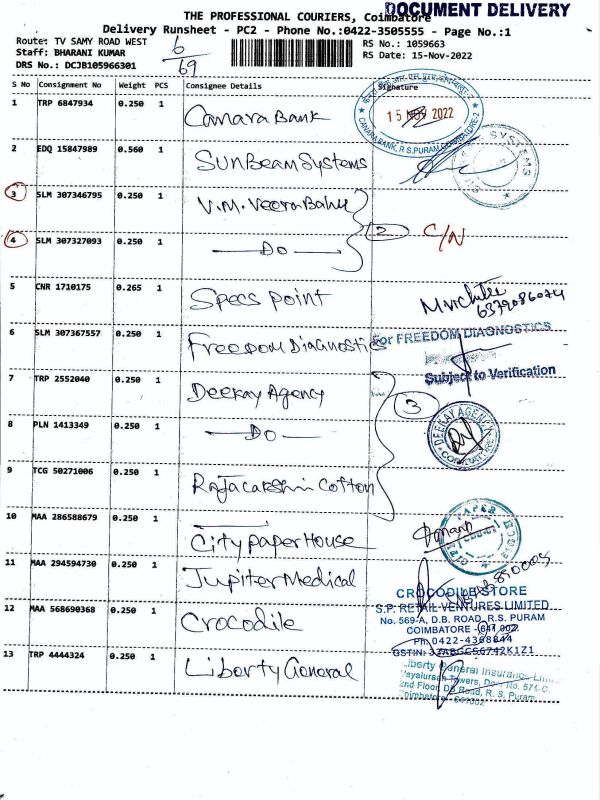 DOCUMENT DELIVERY
THE PROFESSIONAL COURIERS, Coimbatore
Delivery Runsheet - PC2 - Phone No.:0422-3505555 - Page No.:1
Route: TV SAMY ROAD WEST
6/69
RS No.: 1059663
Staff: BHARANI KUMAR
RS Date: 15-Nov-2022
DRS No.: DCJB105966301
S No Consignment No Weight PCS Consignee Details Signature
1 TRP 6847934 0.250 1 Canara Bank
15 NOV 2022
CANARA BANK, R.S.PURAM, COIMBATORE-2
2 EDQ 15847989 0.560 1 SunBeam Systems
SYSTEMS
3 SLM 307346795 0.250 1 V.M. Veera Babu
2 C/N
4 SLM 307327093 0.250 1 —Do—
5 CNR 1710175 0.265 1 Specs Point
6379086074
6 SLM 307367557 0.250 1 Freedom Diagnostics
For FREEDOM DIAGNOSTICS
Subject to Verification
7 TRP 2552040 0.250 1 Deekay Agency
3
DEEKAY AGENCY
COIMBATORE
8 PLN 1413349 0.250 1 —Do—
9 TCG 50271006 0.250 1 Rajalakshmi Cotton
10 MAA 286588679 0.250 1 City Paper House
CITY PAPER HOUSE
11 MAA 294594730 0.250 1 Jupiter Medical
12 MAA 568690368 0.250 1 Crocodile
CROCODILE STORE
S.P. RETAIL VENTURES LIMITED
No. 569-A, D.B. ROAD, R.S. PURAM
COIMBATORE - 641 002.
Ph: 0422-4368844
13 TRP 4444324 0.250 1 Liberty General
Liberty General Insurance
Towers, Door No. 574-C
2nd Floor, DB Road, R. S. Puram
Coimbatore - 641002